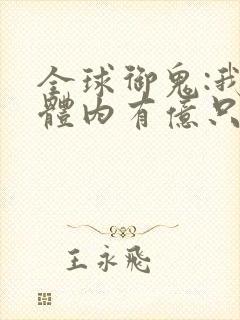 全球御鬼:我
體内有億只
王永飛